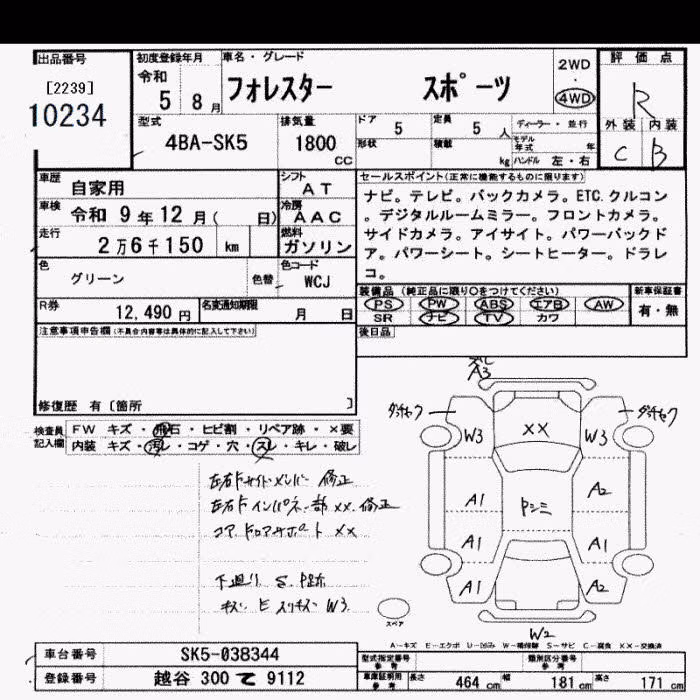 出品番号
[2239]
10234
初度登録年月
令和
5 8月
車名・グレード
フォレスター スポーツ
2WD
4WD
評価点
R
外装 内装
C B
型式
4BA-SK5
排気量
1800
CC
ドア
5
定員
5 人
ディーラー・並行
形状
積載
kg
モデル年式 年
ハンドル 左・右
車歴
自家用
シフト
AT
車検
令和 9年12月( 日)
冷房
AAC
走行
2万6千150 km
燃料
ガソリン
色
グリーン
色替
色コード
WCJ
R券
12,490円
名変通知期限
月 日
セールスポイント(正常に機能するものに限ります)
ナビ。テレビ。バックカメラ。ETC.クルコン
。デジタルルームミラー。フロントカメラ。
サイドカメラ。アイサイト。パワーバックド
ア。パワーシート。シートヒーター。ドラレ
コ。
装備品(純正品に限り〇をつけてください)
PS PW ABS エアB AW
SR ナビ TV カワ
新車保証書
有・無
後日品
注意事項申告欄(不具合内容等は具体的に記入して下さい)
修復歴 有〔箇所 〕
検査員
記入欄
FW キズ・飛石・ヒビ割・リペア跡・×要
内装 キズ・汚レ・コゲ・穴・スレ・キレ・破レ
左右Fサイドメンバー 修正
左右Fインパネ部 XX、修正
コアサポート XX
下廻り S
キズ E W3
A3
W3
XX
W3
A1
A2
A1
A1
A1
A2
W2
スペア
A-キズ E-エクボ U-凹み W-補修跡 S-サビ C-腐食 XX-交換済
車台番号
SK5-038344
登録番号
越谷 300 て 9112
型式指定番号
参考
類別区分番号
参考
車庫証明用
参考
長さ 464 cm 幅 181 cm 高さ 171 cm